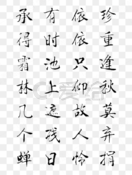 珍重逢秋莫弃捐
依依只仰故人怜
有时池上遮残日
承得霜林几个蝉